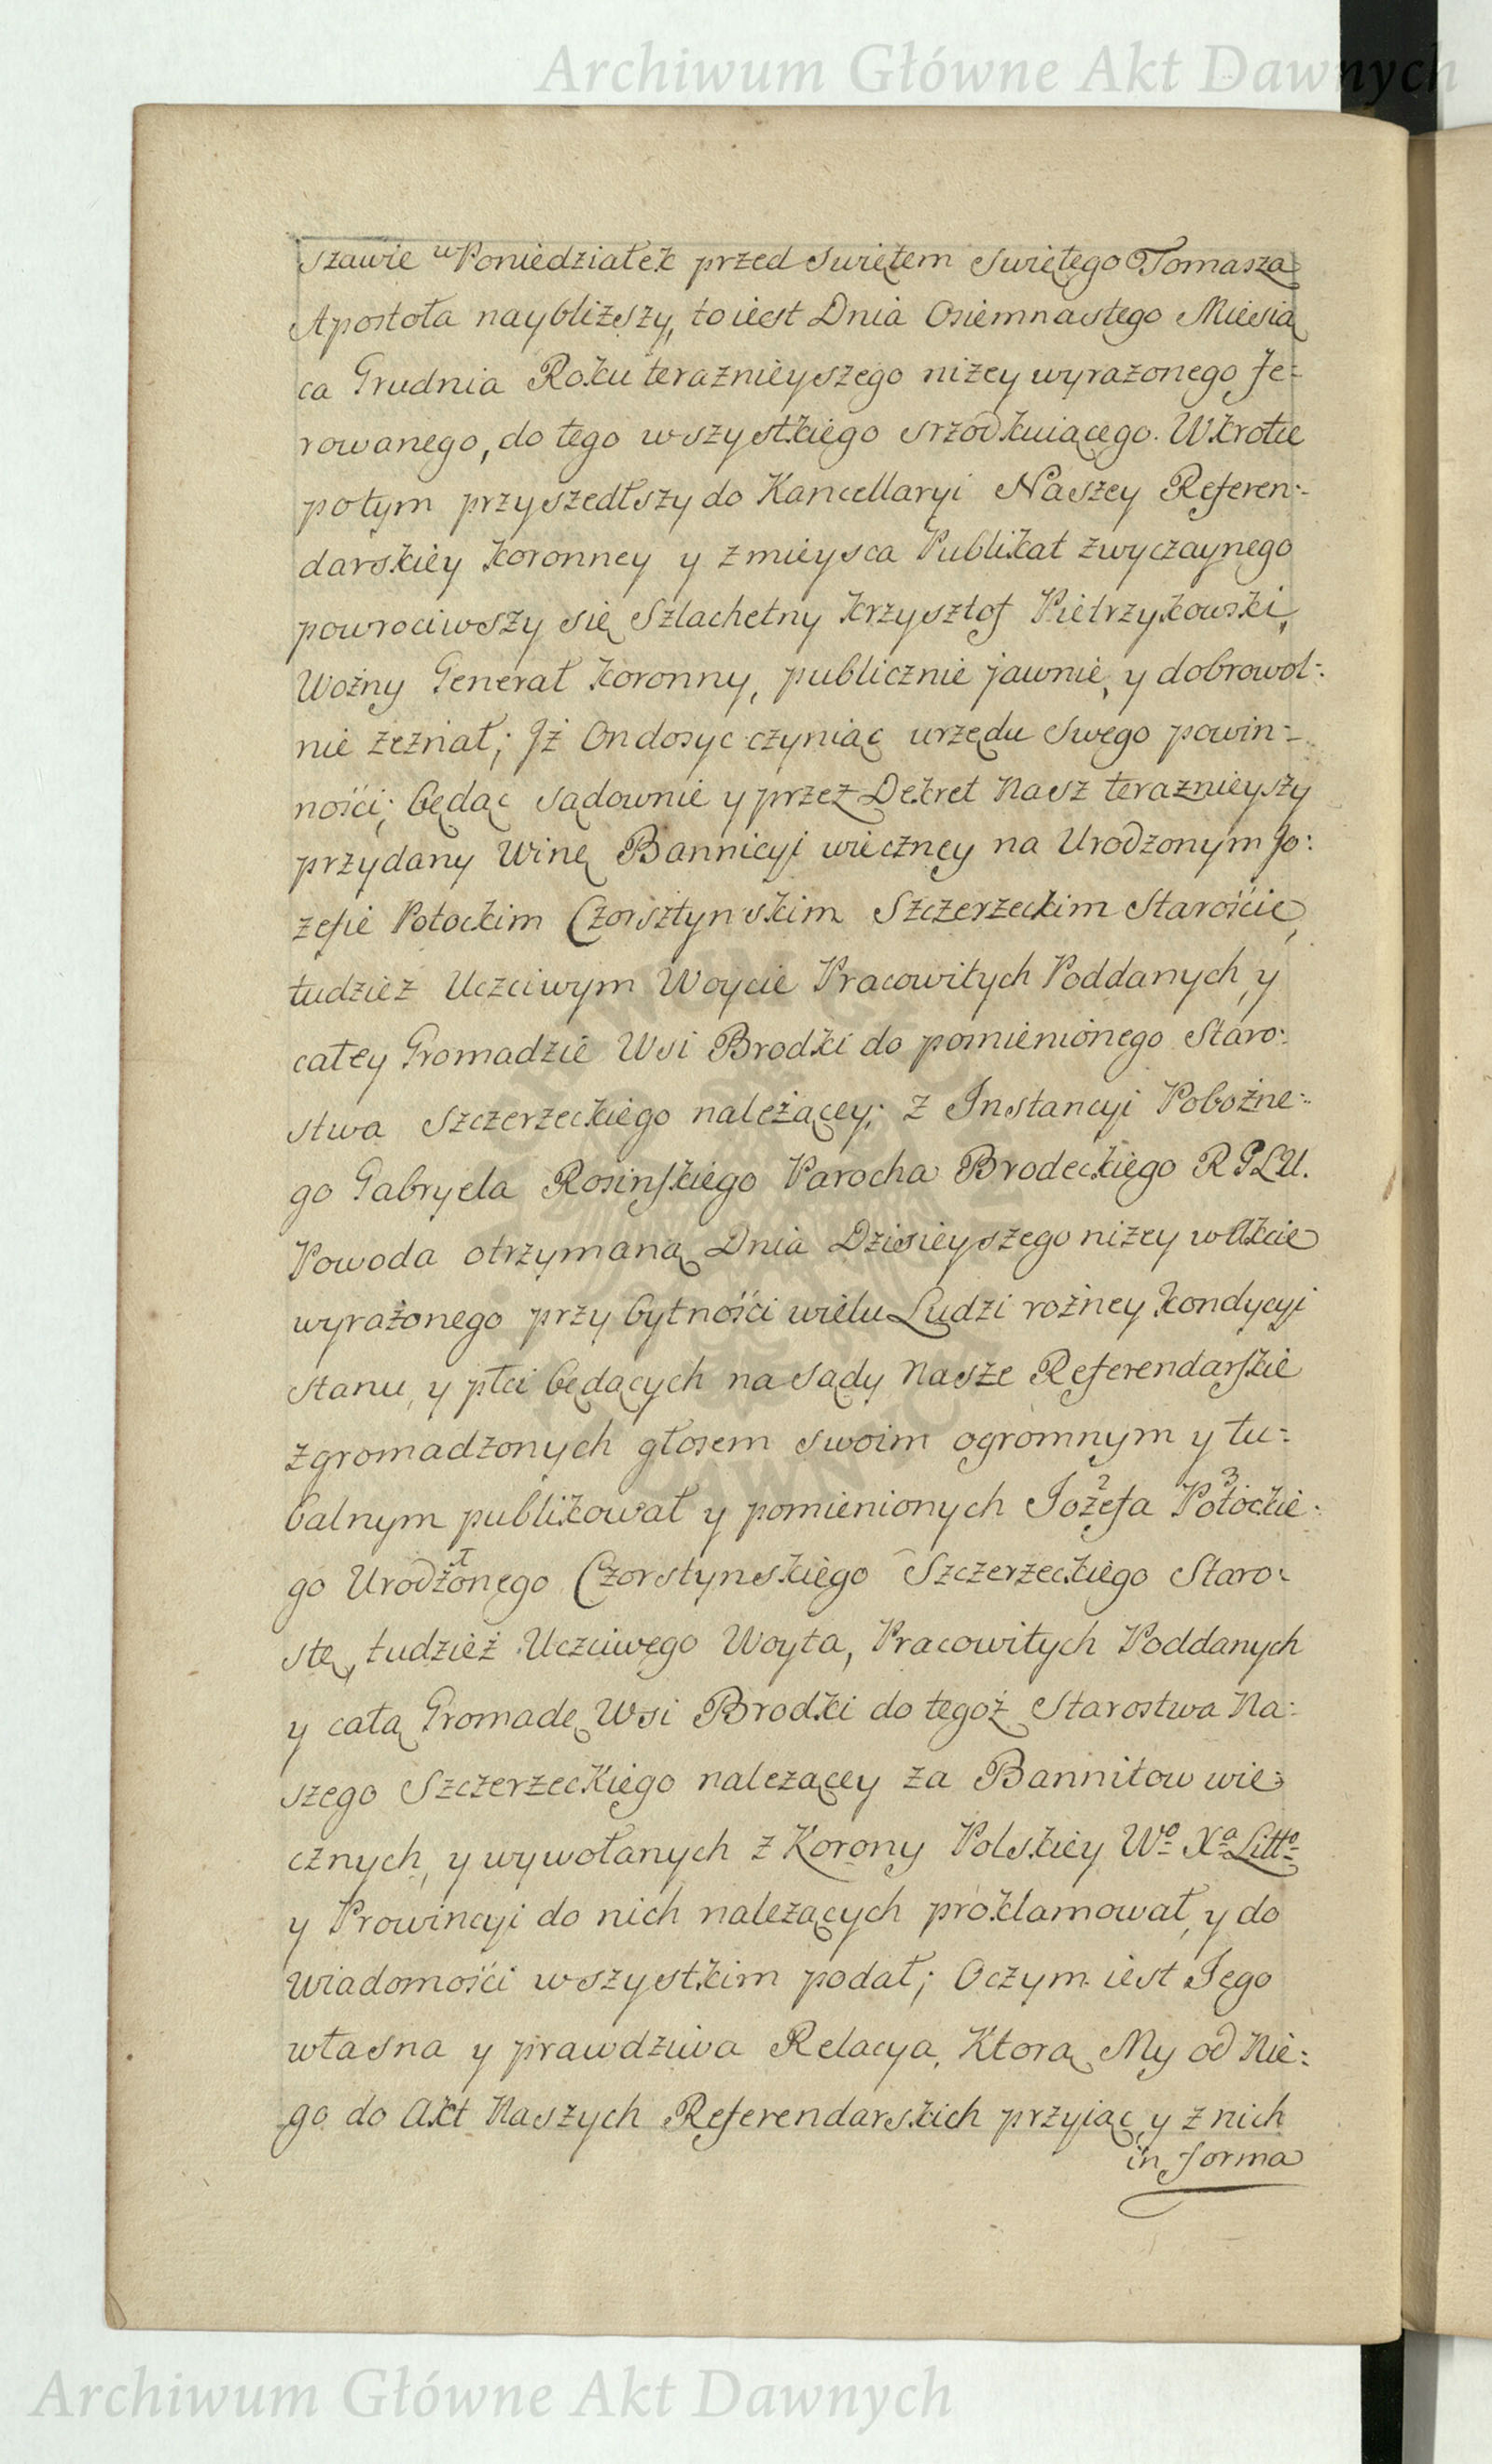 Archiwum Główne Akt Dawnych
szawie w Poniedziałek przed Swiętem Swiętego Tomasza
Apostoła naybliższy, to iest Dnia Osiemnastego Miesią
ca Grudnia Roku teraznieyszego niżey wyrażonego fe:
rowanego, do tego wszystkiego srzodkuiącego. Wkrotce
potym przyszedłszy do Kancellaryi Naszey Referen:
darskiey koronney y z mieysca Publikat zwyczaynego
powrociwszy się Szlachetny Krzysztof Pietrzykowski,
Woźny Generał koronny, publicznie jawnie, y dobrowol:
nie zeznał; Iż On dosyc czyniąc urzędu Swego powin:
ności; będąc sądownie y przez Dekret Nasz teraznieyszy
przydany Winę Bannicyi wieczney na Urodzonym Jo:
zefie Potockim Czorsztynskim Szczerzeckim Starościę,
tudziez Uczciwym Woycie Pracowitych Poddanych, y
całey Gromadzie Wsi Brodki do pomienionego Staro:
stwa Szczerzeckiego należącey; z Instancyi Pobożne:
go Gabryela Rosinskiego Parocha Brodeckiego RGLU.
Powoda otrzymaną Dnia Dzisieyszego niżey w Akcie
wyrażonego przy bytności wielu Ludzi rożney kondycyi
stanu, y płci będących na Sądy Nasze Referendarskie
zgromadzonych głosem swoim ogromnym y tu:
balnym publikował y pomienionych Jozefa 2 Potockie: 3
go Urodzonego 1 Czorstynskiego Szczerzeckiego Staro:
stę, tudzież Uczciwego Woyta, Pracowitych Poddanych
y całą Gromadę Wsi Brodki do tegoż Starostwa Na:
szego Szczerzeckiego nalezącey za Bannitow wie:
cznych, y wywołanych z Korony Polskiey Wo Xa Litto
y Prowincyi do nich nalezących proklamował, y do
wiadomości wszystkim podał; Oczym iest Jego
własna y prawdziwa Relacya, Ktorą My od Nie:
go do Akt Naszych Referendarskich przyjąc, y z nich
in forma
Archiwum Główne Akt Dawnych